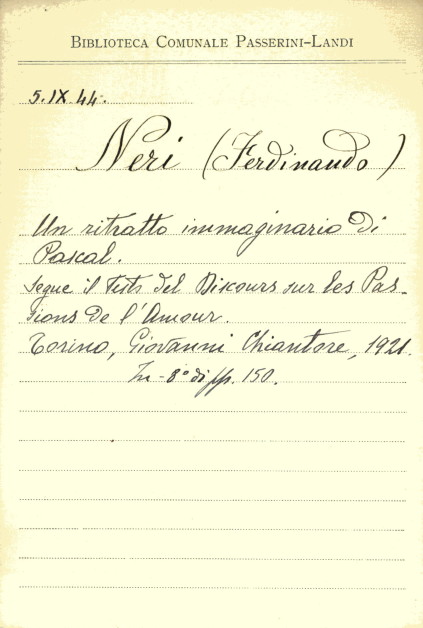 BIBLIOTECA COMUNALE PASSERINI-LANDI
5.IX 44.
Neri (Ferdinando)
Un ritratto immaginario di
Pascal.
Segue il testo del Discours sur les Pas-
sions de l'Amour.
Torino, Giovanni Chiantore, 1921.
In-8° di pp. 150.